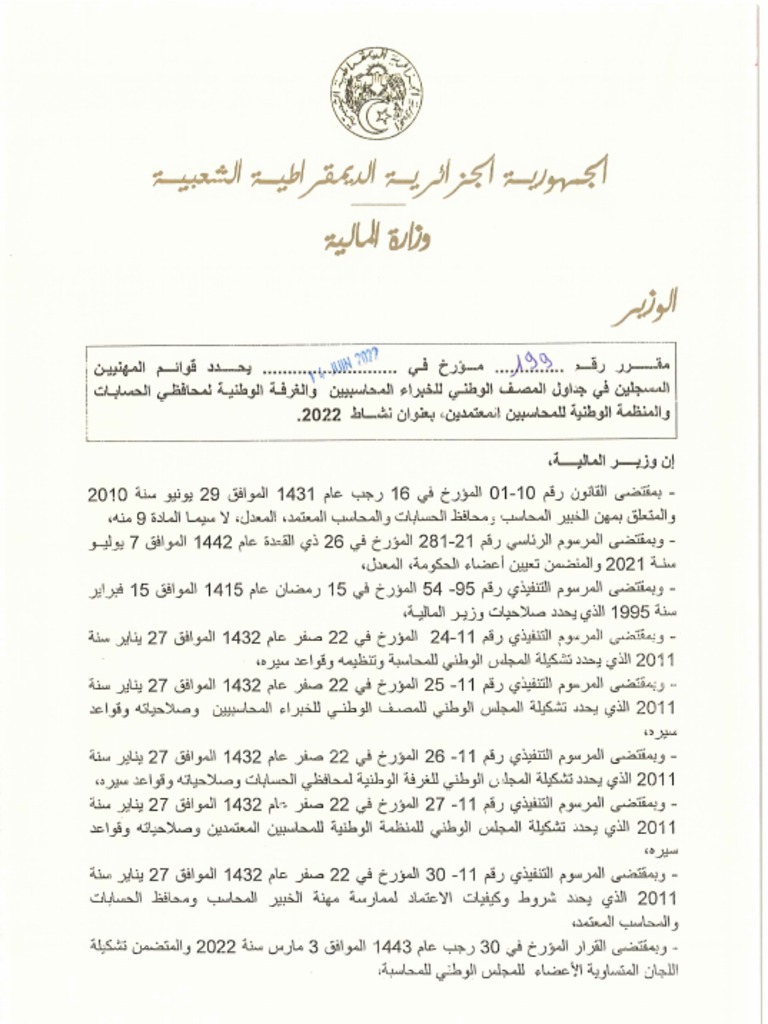 الجمهورية الجزائرية الديمقراطية الشعبية
وزارة المالية
الوزير
مقـــرر رقـم ....199.... مـؤرخ في ....14 JUIN 2022.... يحـدد قوائـم المهنيين
المسجلين في جداول المصف الوطني للخبراء المحاسبيين والغرفة الوطنية لمحافظي الحسابات
والمنظمة الوطنية للمحاسبين المعتمدين، بعنوان نشاط 2022.
إن وزيـر الماليـــة،
- بمقتضى القانون رقم 10-01 المؤرخ في 16 رجب عام 1431 الموافق 29 يونيو سنة 2010
والمتعلق بمهن الخبير المحاسب ومحافظ الحسابات والمحاسب المعتمد، المعدل، لا سيما المادة 9 منه،
- وبمقتضى المرسوم الرئاسي رقم 21-281 المؤرخ في 26 ذي القعدة عام 1442 الموافق 7 يوليـو
سنـة 2021 والمتضمن تعيين أعضاء الحكومة، المعدل،
- وبمقتضى المرسوم التنفيذي رقم 95- 54 المؤرخ في 15 رمضان عام 1415 الموافق 15 فبراير
سنة 1995 الذي يحدد صلاحيات وزير المالية،
- وبمقتضى المرسوم التنفيذي رقم 11-24 المؤرخ في 22 صفر عام 1432 الموافق 27 يناير سنة
2011 الذي يحدد تشكيلة المجلس الوطني للمحاسبة وتنظيمه وقواعد سيره،
- وبمقتضى المرسوم التنفيذي رقم 11- 25 المؤرخ في 22 صفر عام 1432 الموافق 27 يناير سنة
2011 الذي يحدد تشكيلة المجلس الوطني للمصف الوطني للخبراء المحاسبيين وصلاحياته وقواعد
سيره،
- وبمقتضى المرسوم التنفيذي رقم 11- 26 المؤرخ في 22 صفر عام 1432 الموافق 27 يناير سنة
2011 الذي يحدد تشكيلة المجلس الوطني للغرفة الوطنية لمحافظي الحسابات وصلاحياته وقواعد سيره،
- وبمقتضى المرسوم التنفيذي رقم 11- 27 المؤرخ في 22 صفر عام 1432 الموافق 27 يناير سنة
2011 الذي يحدد تشكيلة المجلس الوطني للمنظمة الوطنية للمحاسبين المعتمدين وصلاحياته وقواعد
سيره،
- وبمقتضى المرسوم التنفيذي رقم 11- 30 المؤرخ في 22 صفر عام 1432 الموافق 27 يناير سنة
2011 الذي يحدد شروط وكيفيات الاعتماد لممارسة مهنة الخبير المحاسب ومحافظ الحسابات
والمحاسب المعتمد،
- وبمقتضى القرار المؤرخ في 30 رجب عام 1443 الموافق 3 مارس سنة 2022 والمتضمن تشكيلة
اللجان المتساوية الأعضاء للمجلس الوطني للمحاسبة،